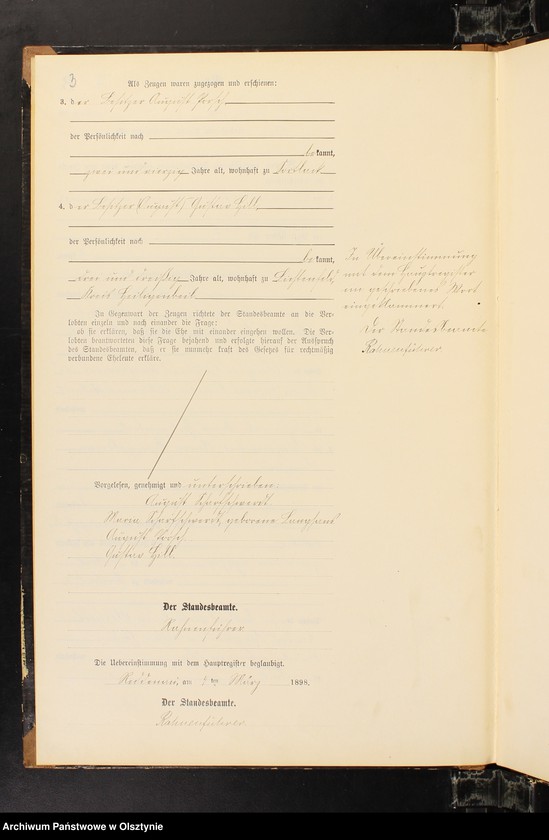 3
Als Zeugen waren zugezogen und erschienen:
3. der Besitzer August
der Persönlichkeit nach
bekannt,
zwei und vierzig Jahre alt, wohnhaft zu
4. der Besitzer (August) Gustav Hill
der Persönlichkeit nach
bekannt,
und dreißig Jahre alt, wohnhaft zu
Kreis Heiligenbeil
In Gegenwart der Zeugen richtete der Standesbeamte an die Ver-
lobten einzeln und nach einander die Frage:
ob sie erklären, daß sie die Ehe mit einander eingehen wollen. Die Ver-
lobten beantworteten diese Frage bejahend und erfolgte hierauf der Ausspruch
des Standesbeamten, daß er sie nunmehr kraft des Gesetzes für rechtmäßig
verbundene Eheleute erkläre.
In Übereinstimmung
mit dem Hauptregister
ein geschriebenes Wort
eingeklammert.
Der Standesbeamte
Vorgelesen, genehmigt und unterschrieben
August Scharfschwerdt
Maria Scharfschwerdt, geborene Langhans
August
Gustav Hill.
Der Standesbeamte.
Die Uebereinstimmung mit dem Hauptregister beglaubigt.
am März 1898.
Der Standesbeamte.
Archiwum Państwowe w Olsztynie